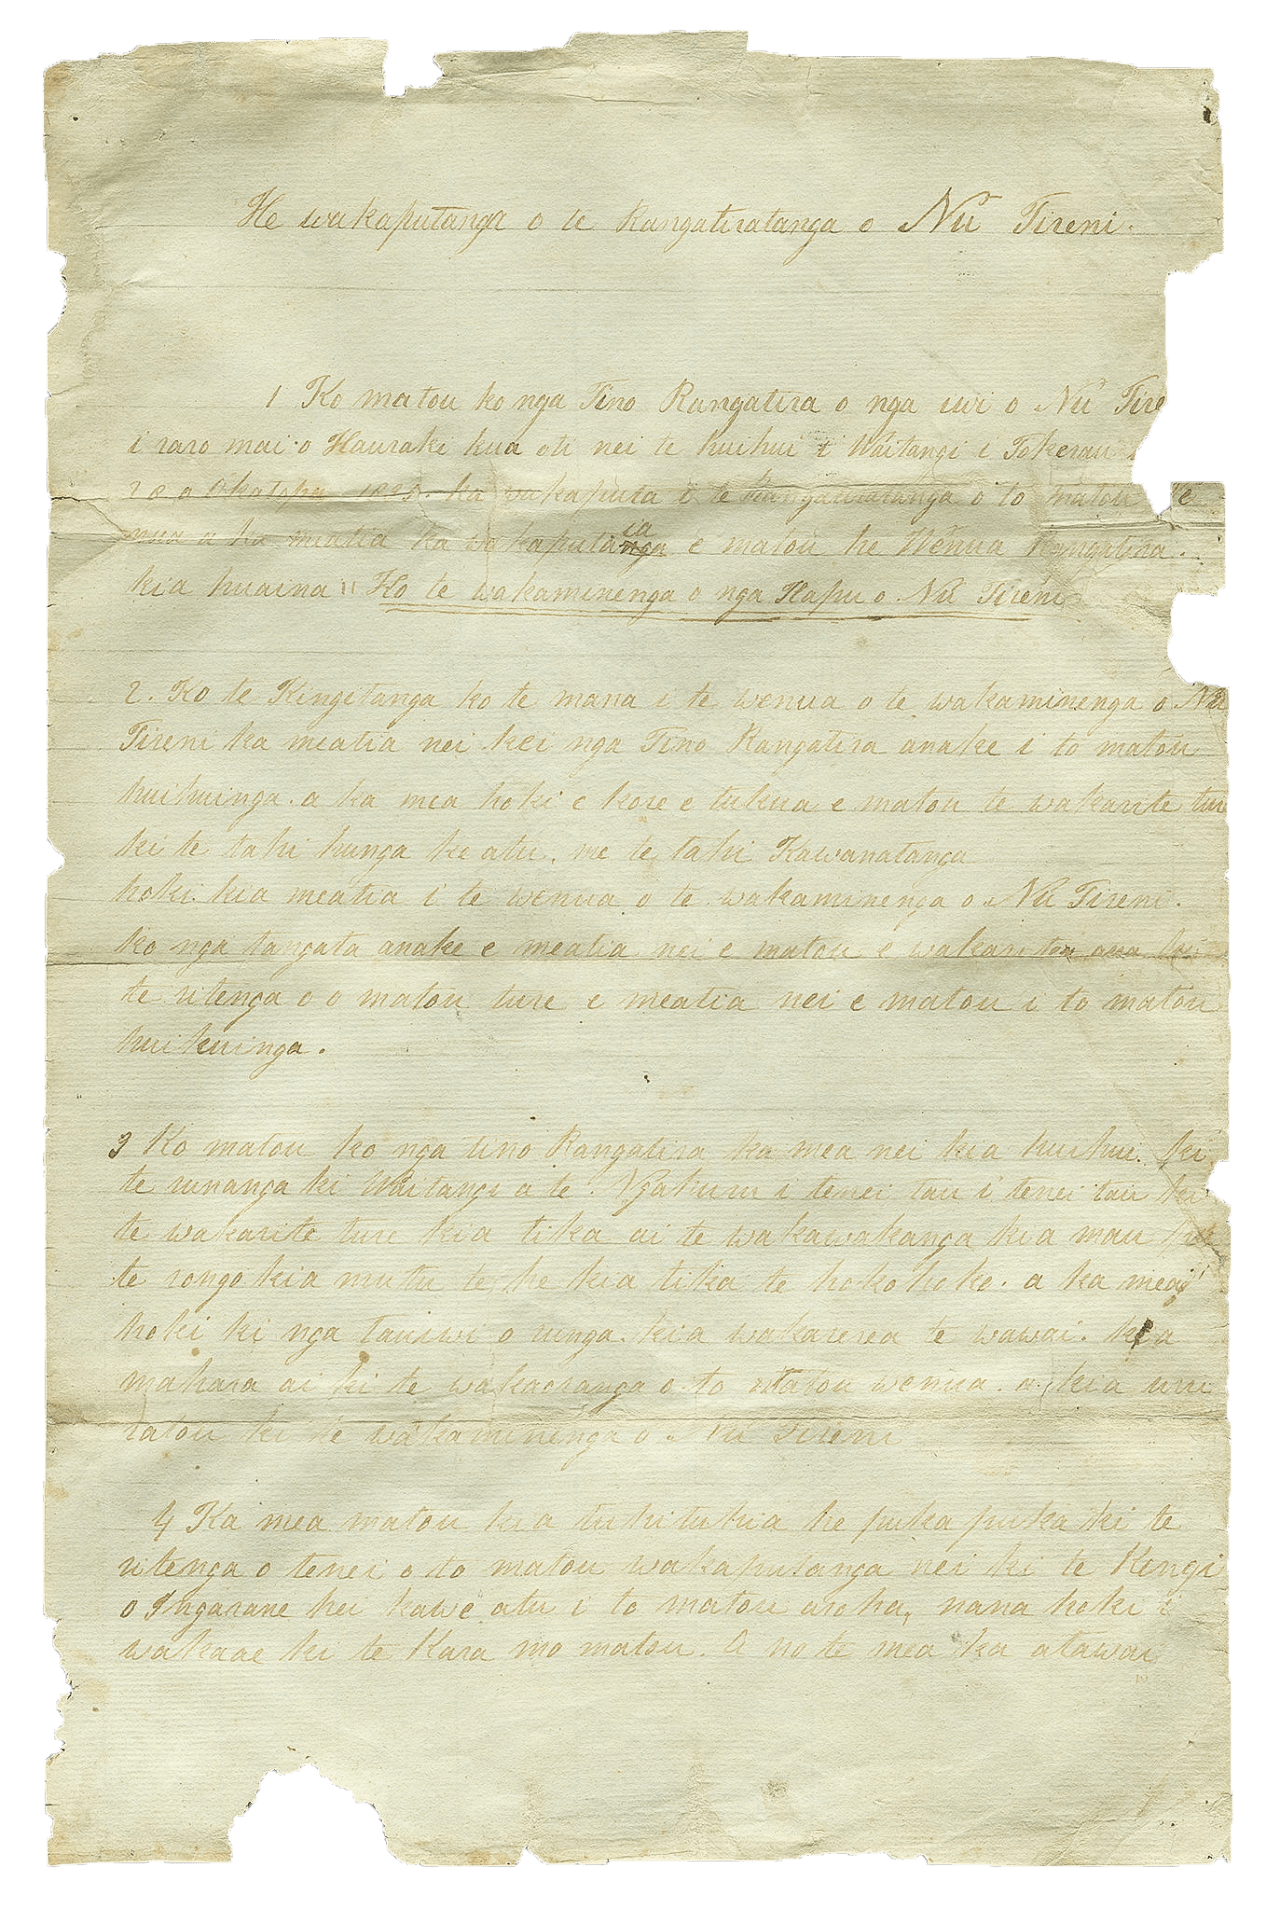 He wakaputanga o te Rangatiratanga o Nu Tireni.
1 Ko matou ko nga Tino Rangatira o nga iwi o Nu Tire
i raro mai o Hauraki kua oti nei te huihui i Waitangi i Tokerau
28 o Okatopa 1835. ka wakaputa i te Rangatiratanga o to matou we
nua a ka meatia ka wakaputaia e matou he Wenua Rangatira.
kia huaina "Ko te wakaminenga o nga Hapu o Nu Tireni
2. Ko te Kingitanga ko te mana i te wenua o te wakaminenga o Nu
Tireni ka meatia nei kei nga Tino Rangatira anake i to matou
huihuinga. a ka mea hoki e kore e tukua e matou te wakarite ture
ki te tahi hunga ke atu, me te tahi Kawanatanga
hoki kia meatia i te wenua o te wakaminenga o Nu Tireni.
ko nga tangata anake e meatia nei e matou e wakarite ana ki
te ritenga o o matou ture e meatia nei e matou i to matou
huihuinga.
3 Ko matou ko nga tino Rangatira ka mea nei kia huihui ki
te runanga ki Waitangi a te Ngahuru i tenei tau i tenei tau ki
te wakarite ture kia tika ai te wakawakanga kia mau pu
te rongo kia mutu te he kia tika te hokohoko. a ka mea
hoki ki nga Tauiwi o runga. kia wakarerea te wawai. kia
mahara ai ki te wakaoranga o to matou wenua. a kia uru
ratou ki te wakaminenga o Nu Tireni
4 Ka mea matou kia tuhituhia he pukapuka ki te
ritenga o tenei o to matou wakaputanga nei ki te Kingi
o Ingarane hei kawe atu i to matou aroha, nana hoki i
wakaae ki te Kara mo matou. A no te mea ka atawai